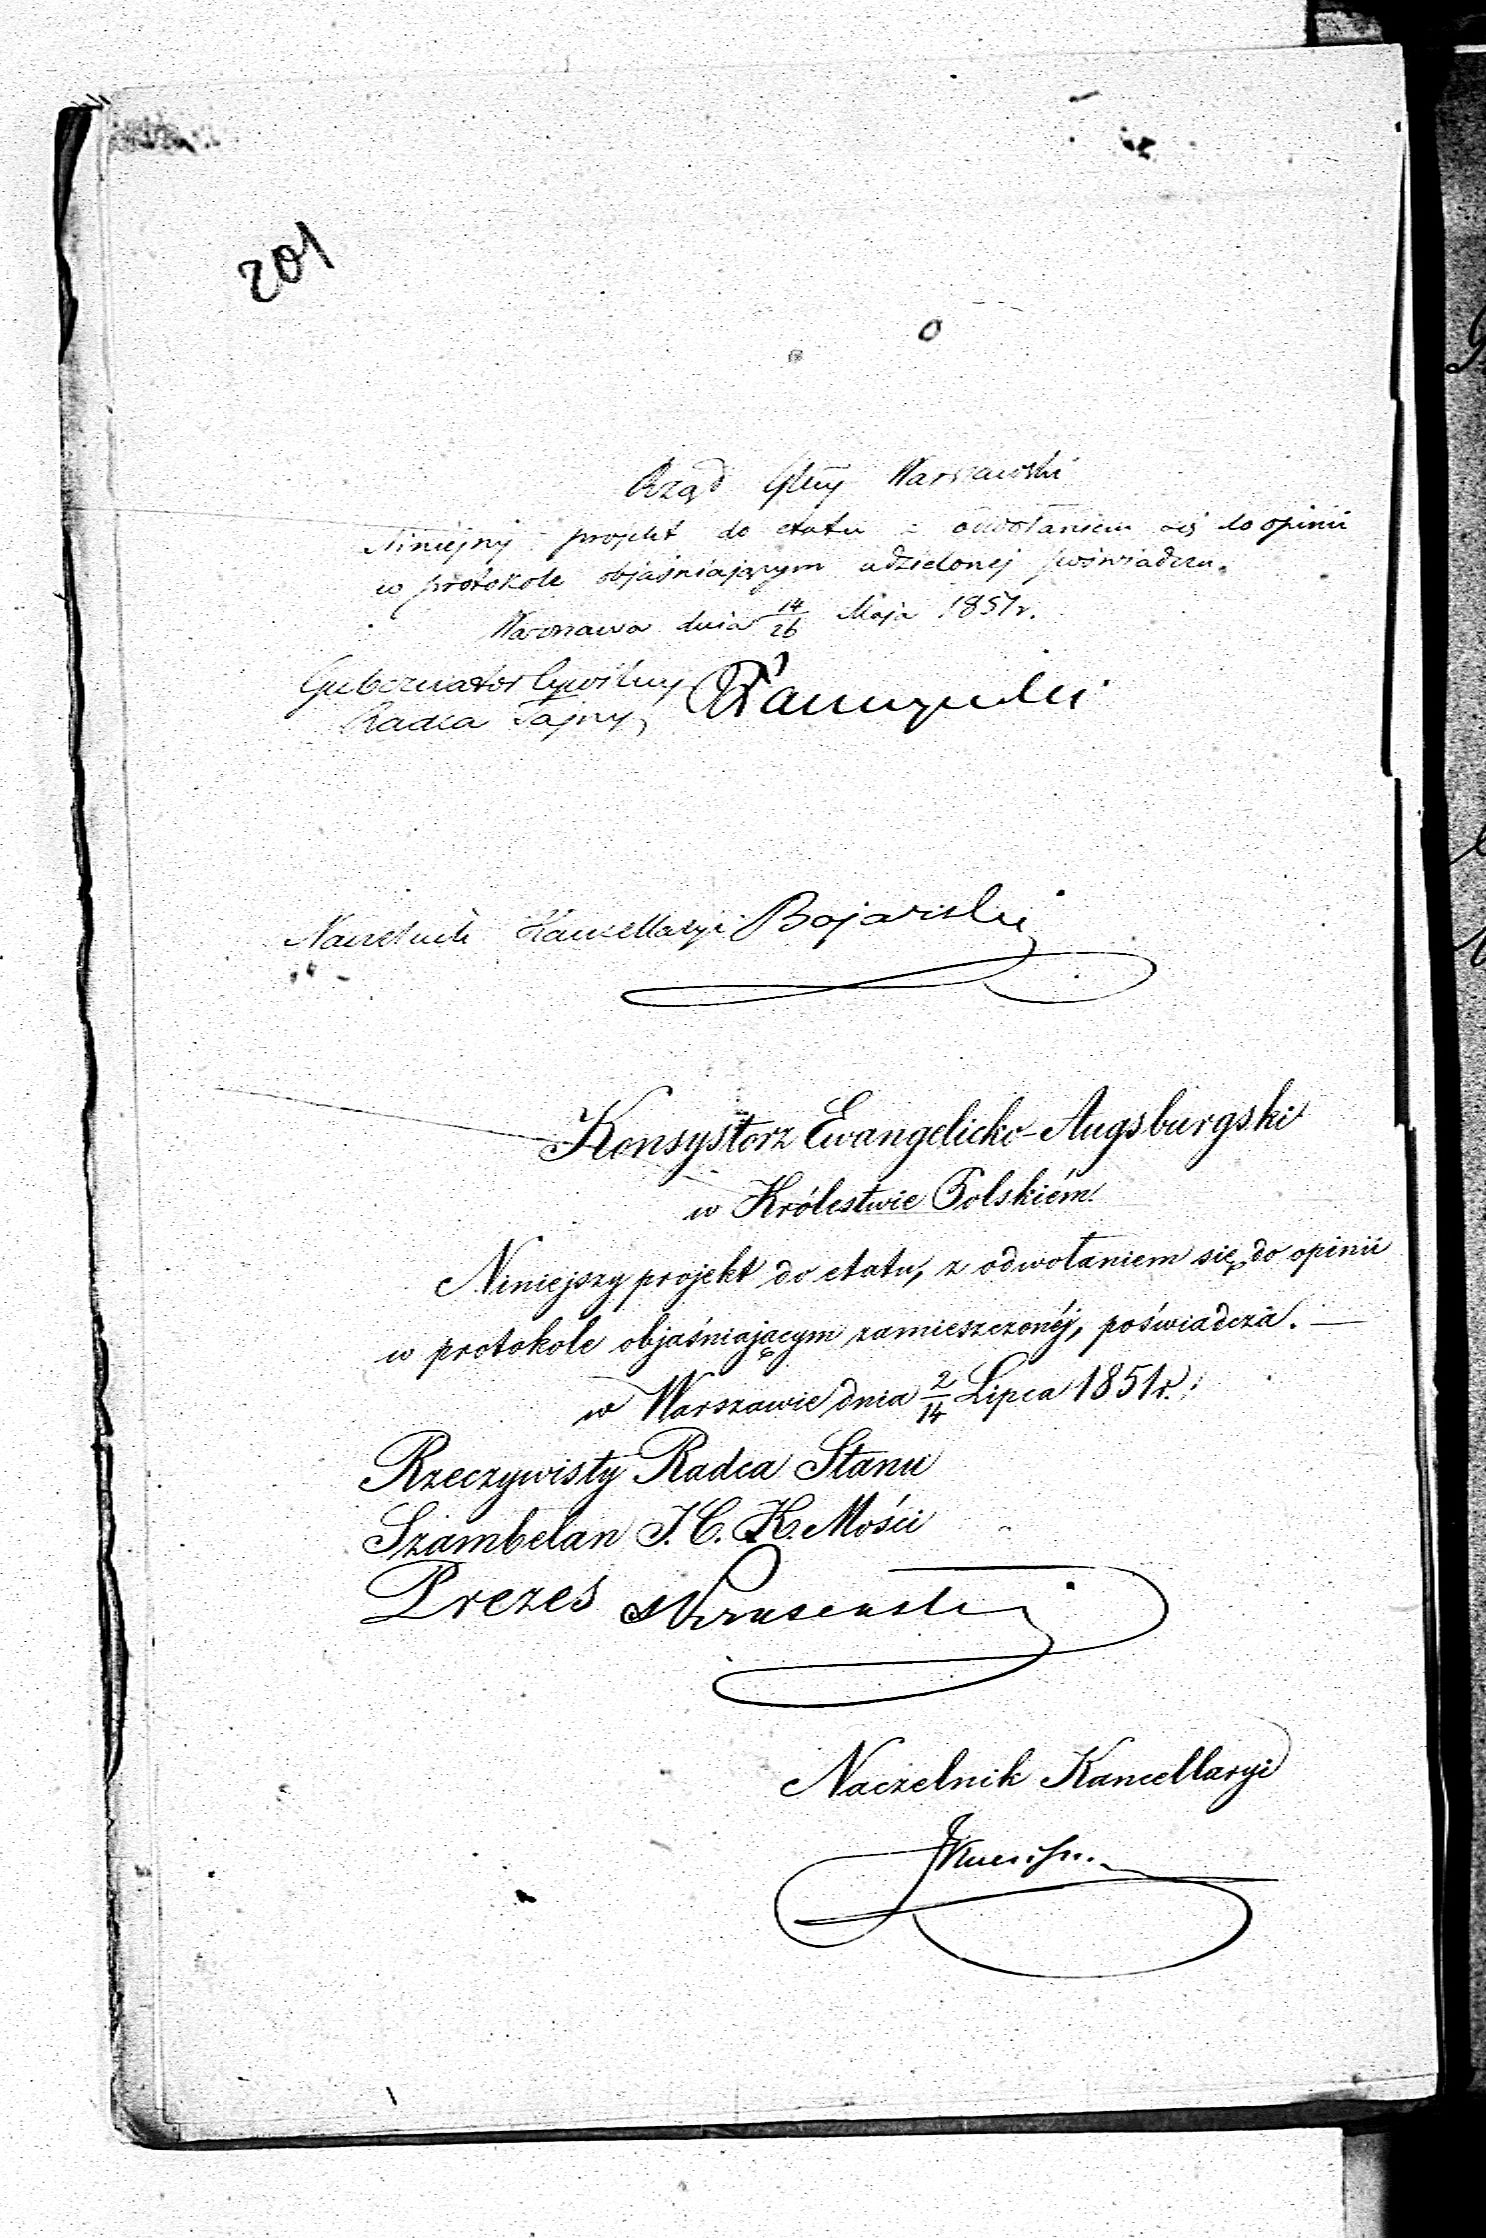 201
Rząd Gbny Warszawski
Niniejszy projekt do etatu z odwołaniem się do opinii
w protokole objaśniającym udzielonej poświadcza.
Warszawa dnia 14/26 Maja 1851 r.
Gubernator Cywilny
Radca Tajny,
Naczelnik Kancellaryi Bojarski
Konsystorz Ewangelicko-Augsburgski
w Królestwie Polskiém.
Niniejszy projekt do etatu, z odwołaniem się do opinii
w protokole objaśniającym zamieszczonéj, poświadcza. —
w Warszawie dnia 2/14 Lipca 1851 r.
Rzeczywisty Radca Stanu
Szambelan J. C. K. Mości
Prezes
Naczelnik Kancellaryi